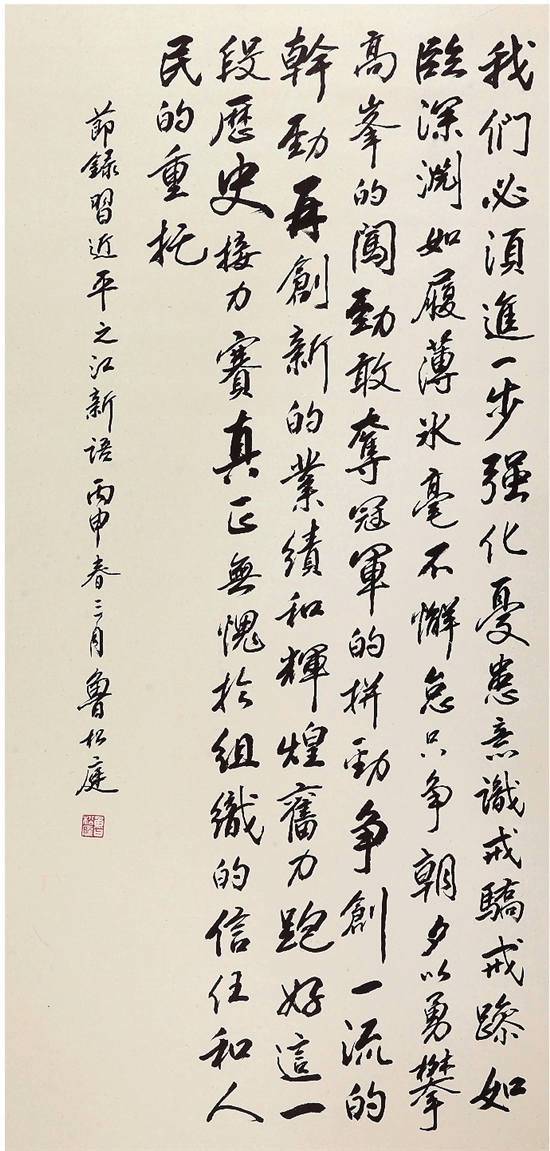 我們必須進一步强化憂患意識戒驕戒躁如
臨深淵如履薄冰毫不懈怠只争朝夕以勇攀
高峯的闖勁敢奪冠軍的拼勁争創一流的
幹勁再創新的業績和輝煌奮力跑好這一
段歷史接力賽真正無愧於組織的信任和人
民的重托
節錄習近平之江新語丙申春三月魯松庭